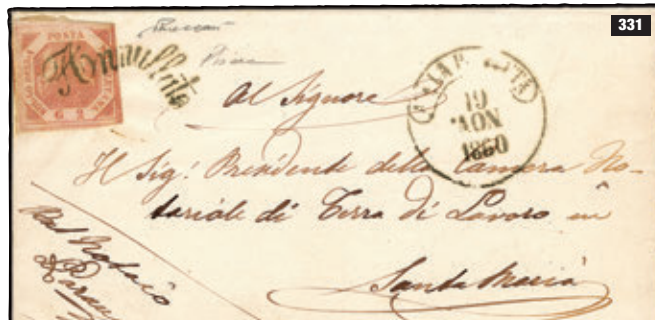 331
POSTA
G 2
Annullato
Al Signore
19
NOV
1860
Il Sig: Presidente della Camera No-
tariale di Terra di Lavoro in
Santa Maria
Dal Notaio